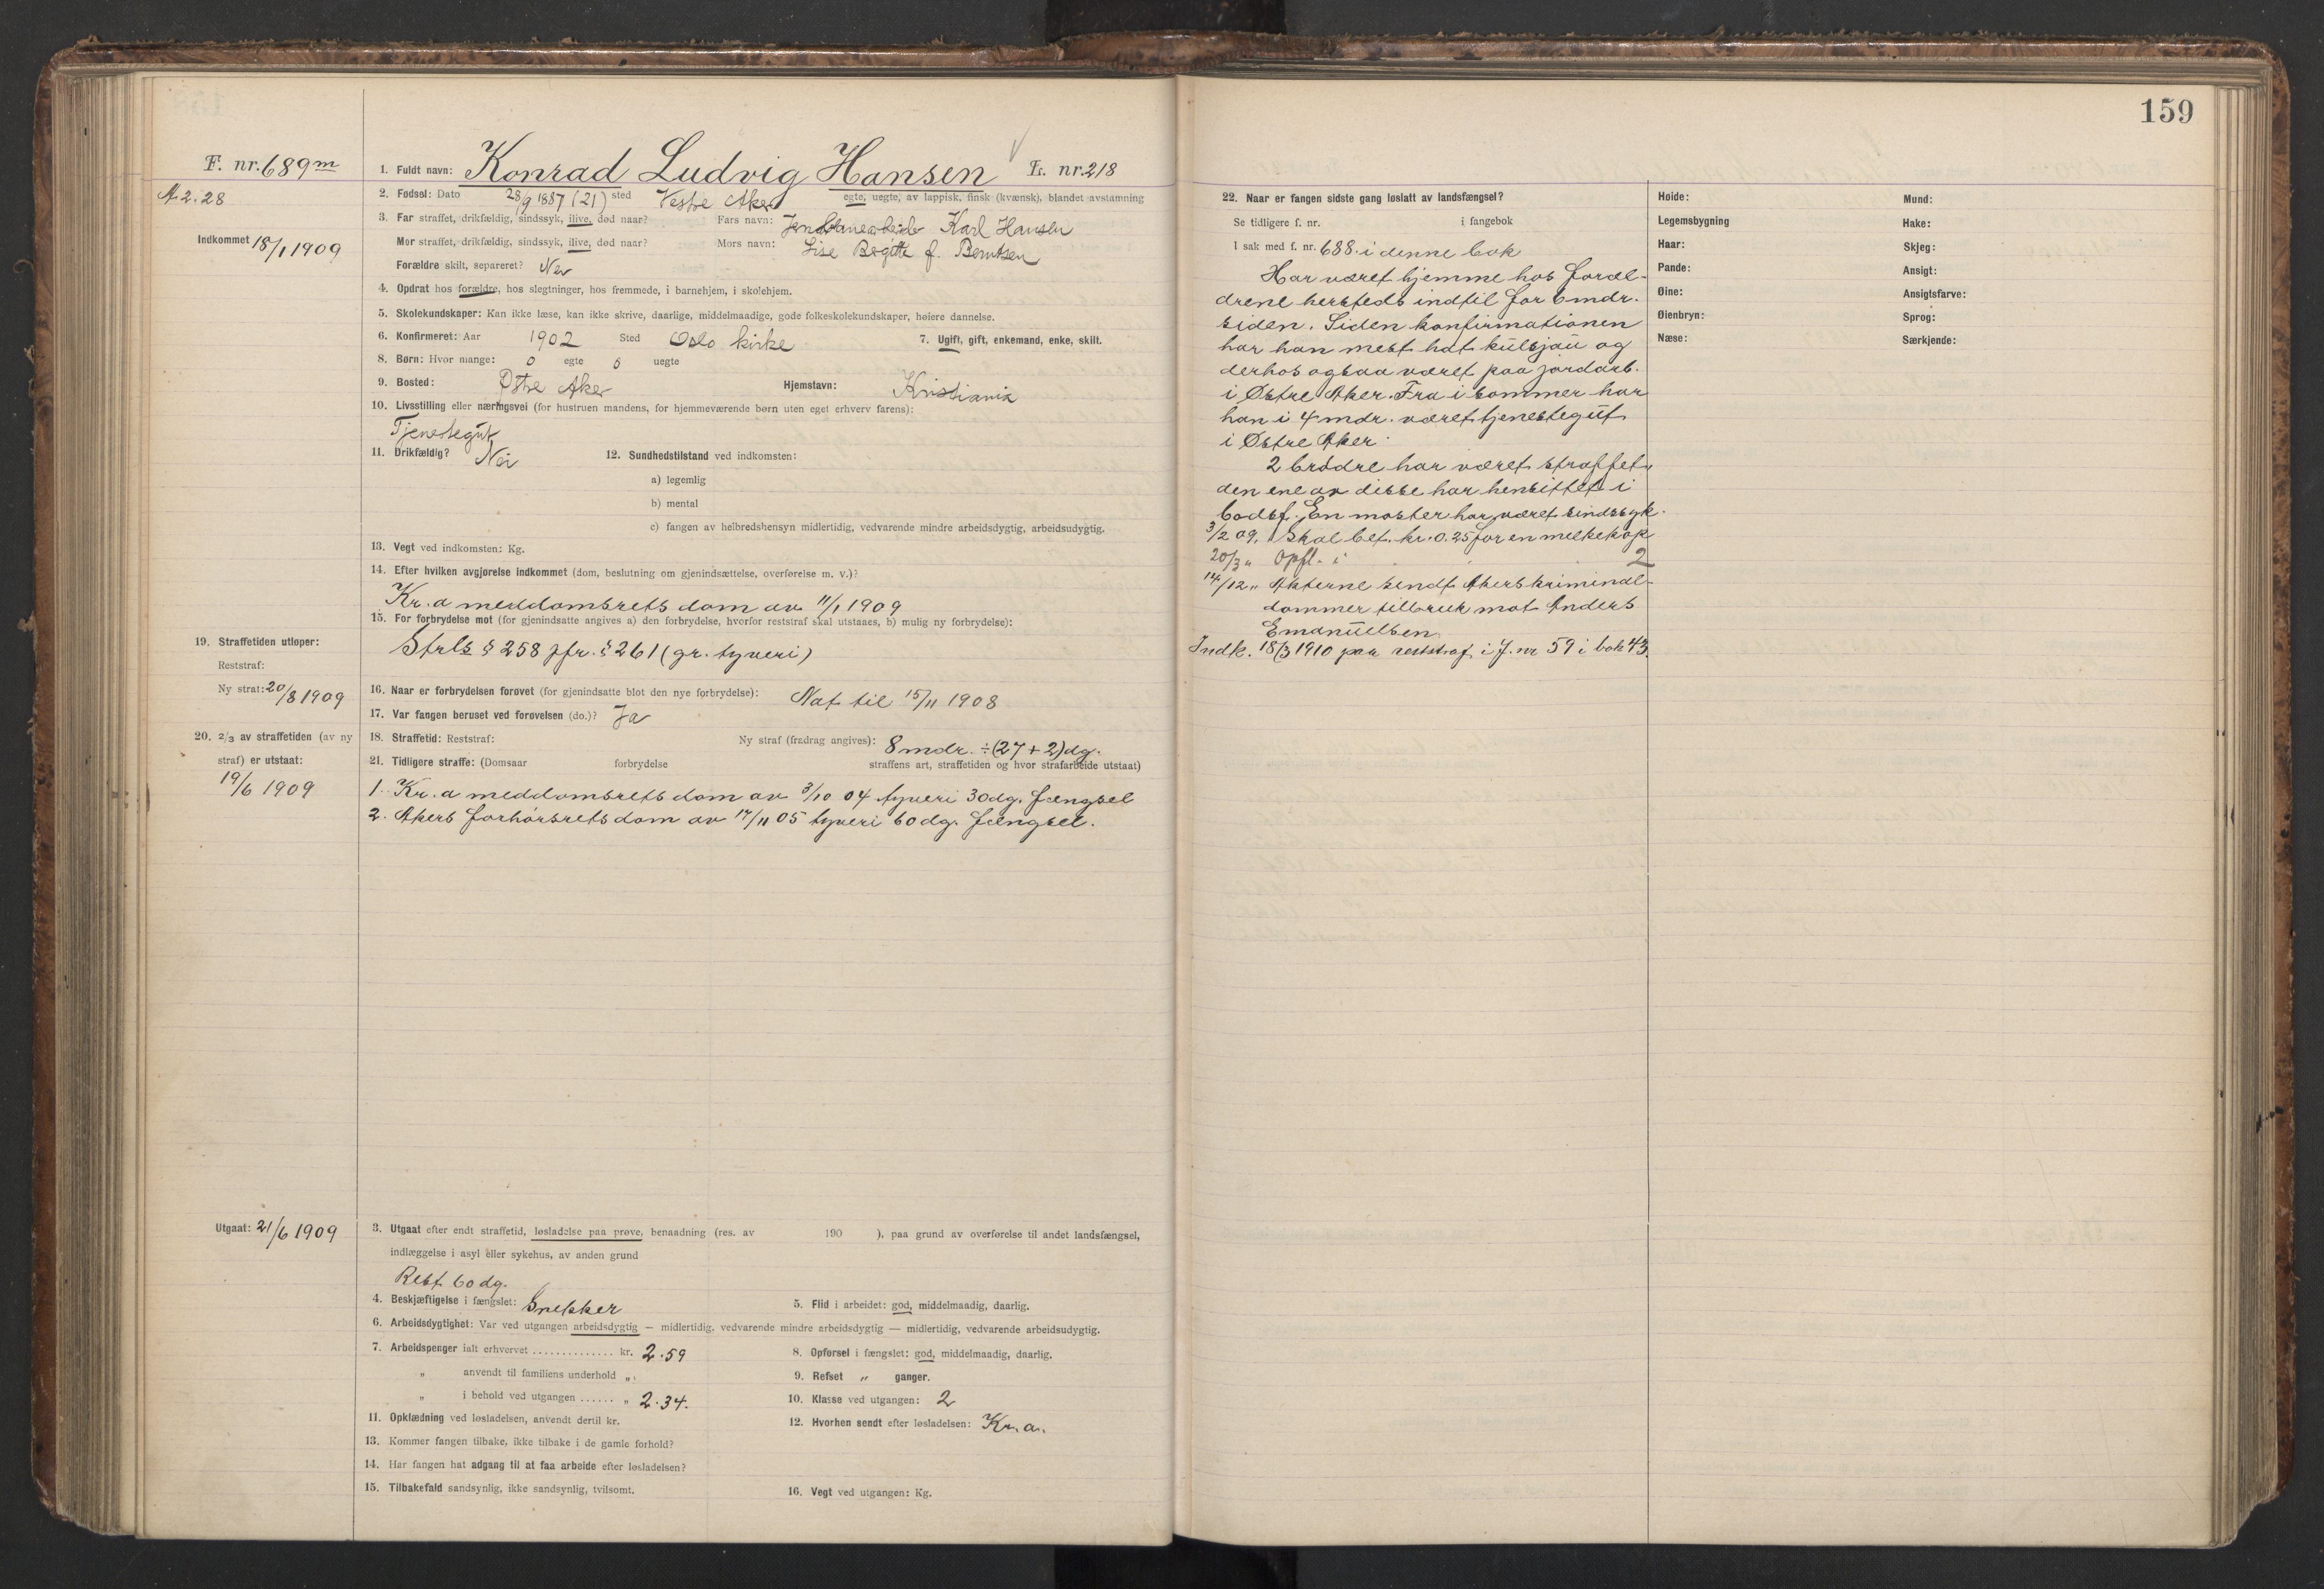 159
F. nr. 689 m
A. 2. 28
Indkommet 18/1 1909
1. Fuldt navn: Konrad Ludvig Hansen L. nr. 218
2. Fødsel: Dato 28/9 1887 (21) sted Vestre Aker egte, uegte, av lappisk, finsk (kvænsk), blandet avstamning
3. Far straffet, drikfældig, sindssyk, ilive, død naar? Fars navn: Karl Hansen
Mor straffet, drikfældig, sindssyk, ilive, død naar? Mors navn: Lise Birgitte f. Berntsen
Forældre skilt, separeret? Nei
4. Opdrat hos forældre, hos slegtninger, hos fremmede, i barnehjem, i skolehjem.
5. Skolekundskaper: Kan ikke læse, kan ikke skrive, daarlige, middelmaadige, gode folkeskolekundskaper, høiere dannelse.
6. Konfirmeret: Aar 1902 Sted Oslo kirke 7. Ugift, gift, enkemand, enke, skilt.
8. Børn: Hvor mange: 0 egte 0 uegte
9. Bosted: Østre Aker Hjemstavn: Kristiania
10. Livsstilling eller næringsvei (for hustruen mandens, for hjemmeværende børn uten eget erhverv farens):
Tjenestegut
11. Drikfældig? Nei 12. Sundhedstilstand ved indkomsten:
a) legemlig
b) mental
c) fangen av helbredshensyn midlertidig, vedvarende mindre arbeidsdygtig, arbeidsudygtig.
13. Vegt ved indkomsten: Kg.
14. Efter hvilken avgjørelse indkommet (dom, beslutning om gjenindsættelse, overførelse m. v.)?
Kr.a meddomsrets dom av 11/1 1909
15. For forbrydelse mot (for gjenindsatte angives a) den forbrydelse, hvorfor reststraf skal utstaaes, b) mulig ny forbrydelse):
Strls § 258 jfr. § 261 (gr. tyveri)
19. Straffetiden utløper:
Reststraf:
Ny straf: 20/8 1909
16. Naar er forbrydelsen forøvet (for gjenindsatte blot den nye forbrydelse): Nat til 15/11 1908
17. Var fangen beruset ved forøvelsen (do.)? Ja
20. 2/3 av straffetiden (av ny
straf) er utstaat:
19/6 1909
18. Straffetid: Reststraf: Ny straf (fradrag angives): 8 mdr. ÷ (27 + 2) dg.
21. Tidligere straffe: (Domsaar forbrydelse straffens art, straffetiden og hvor strafarbeide utstaat)
1. Kr.a meddomsrets dom av 3/10 04 tyveri 30 dg. fængsel
2. Akers forhørsrets dom av 17/11 05 tyveri 60 dg. fængsel.
Utgaat: 21/6 1909
3. Utgaat efter endt straffetid, løsladelse paa prøve, benaadning (res. av 190 ), paa grund av overførelse til andet landsfængsel,
indlæggelse i asyl eller sykehus, av anden grund
Rest 60 dg.
4. Beskjæftigelse i fængslet: Snekker 5. Flid i arbeidet: god, middelmaadig, daarlig.
6. Arbeidsdygtighet: Var ved utgangen arbeidsdygtig — midlertidig, vedvarende mindre arbeidsdygtig — midlertidig, vedvarende arbeidsudygtig.
7. Arbeidspenger ialt erhvervet .............. kr. 2.59 8. Opførsel i fængslet: god, middelmaadig, daarlig.
„ anvendt til familiens underhold „ 9. Refset „ ganger.
„ i behold ved utgangen ...... „ 2.34. 10. Klasse ved utgangen: 2
11. Opklædning ved løsladelsen, anvendt dertil kr. 12. Hvorhen sendt efter løsladelsen: Kr.a.
13. Kommer fangen tilbake, ikke tilbake i de gamle forhold?
14. Har fangen hat adgang til at faa arbeide efter løsladelsen?
15. Tilbakefald sandsynlig, ikke sandsynlig, tvilsomt. 16. Vegt ved utgangen: Kg.
22. Naar er fangen sidste gang løslatt av landsfængsel?
Se tidligere f. nr. i fangebok
I sak med f. nr. 688 i denne bok
Har været hjemme hos foræl-
drene hersteds indtil for 6 mdr.
siden. Siden konfirmationen
har han mest hat kulsjau og
derhos ogsaa været paa jordarb.
i Østre Aker. Fra i sommer har
han i 4 mdr. været tjenestegut
i Østre Aker.
2 brødre har været straffet,
den ene av disse har hensittet i
bodsf. En moster har været sindssyk.
3/2 09. Skal bet. kr. 0.25 for en melkekop
20/3 „ Opfl. i 2
14/12 „ Akterne sendt Akers kriminal-
dommer tilbruk mot Anders
Emanuelsen.
Indk. 18/3 1910 paa reststraf i J. nr 59 i bok 43.
Høide: Mund:
Legemsbygning Hake:
Haar: Skjeg:
Pande: Ansigt:
Øine: Ansigtsfarve:
Øienbryn: Sprog:
Næse: Særkjende: